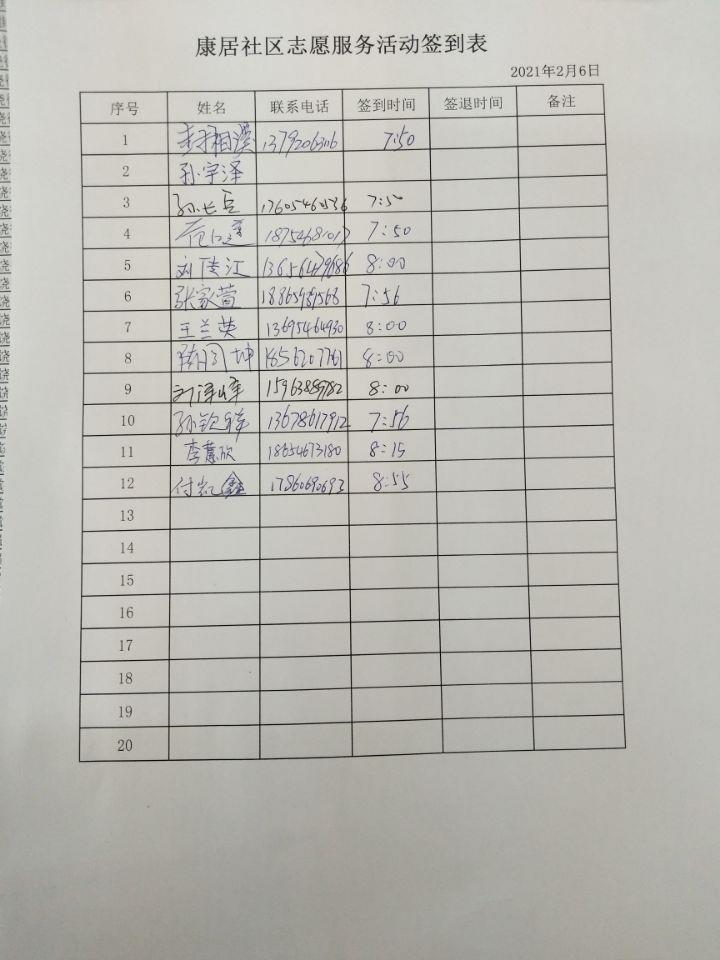 康居社区志愿服务活动签到表
2021年2月6日
序号 姓名 联系电话 签到时间 签退时间 备注
1 7:50
2 孙宇泽
3 孙长兵 17605460536 7:50
4 7:50
5 刘传江 8:00
6 张家萱 7:56
7 王兰英 13695464930 8:00
8 18562077761 8:00
9 刘泽峰 8:00
10 孙钦祥 13678617912 7:56
11 李慧欣 18654673180 8:15
12 付凯鑫 17860690693 8:55
13
14
15
16
17
18
19
20